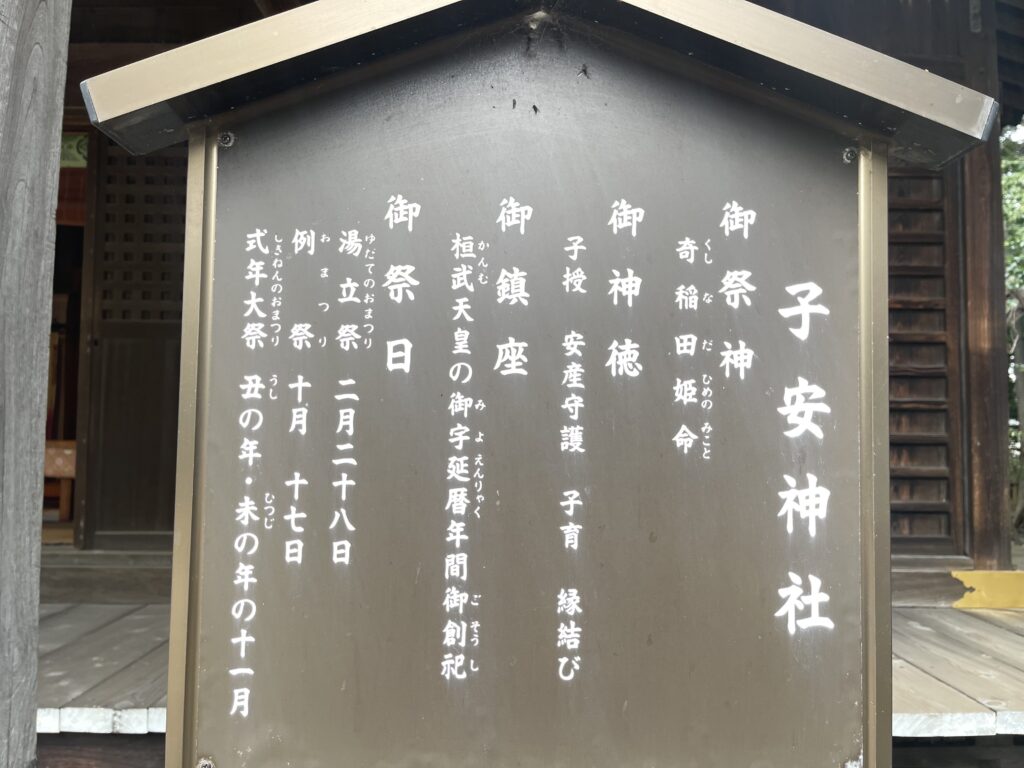 子安神社
御祭神
奇稲田姫命
くし な だ ひめの みこと
御神徳
子授 安産守護 子育 縁結び
御鎮座
桓武天皇の御宇延暦年間御創祀
かんむ み よ えんりゃく ご そうし
御祭日
湯立祭 二月二十八日
ゆだてのおまつり
例祭 十月 十七日
おまつり
式年大祭 丑の年・未の年の十一月
しきねんのおまつり うし ひつじ